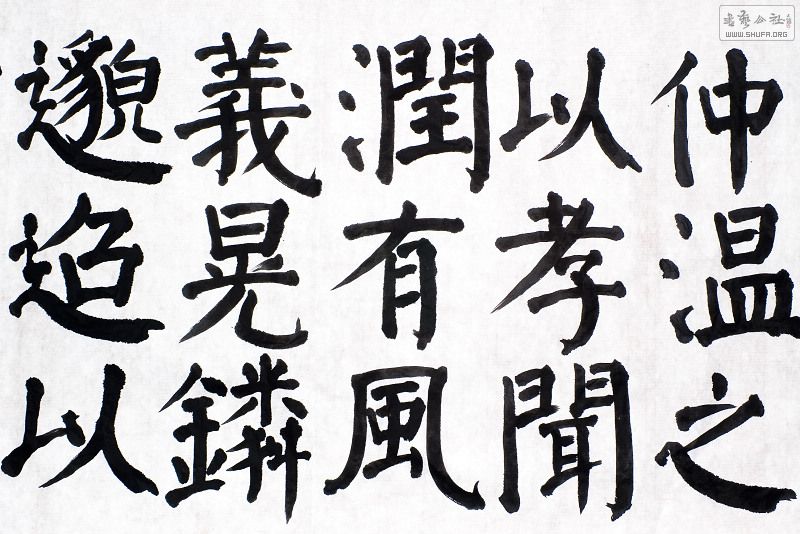 仲温之
以孝聞
潤有風
義晃鏻
邈迢以
書藝公社
WWW.SHUFA.ORG